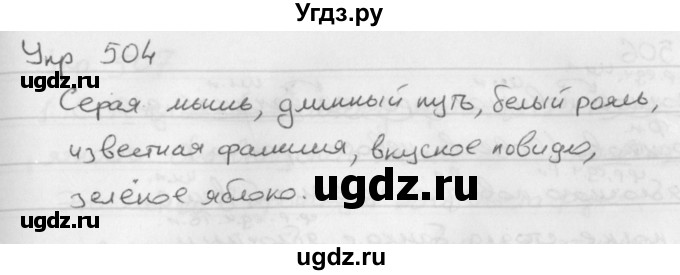 Угдз.ру
Упр 504
ugdz.ru ugdz.ru
Серая мышь, длинный путь, белый рояль,
известная фамилия, вкусное повидло,
зелёное яблоко.
ugdz.ru
ugdz.ru ugdz.ru